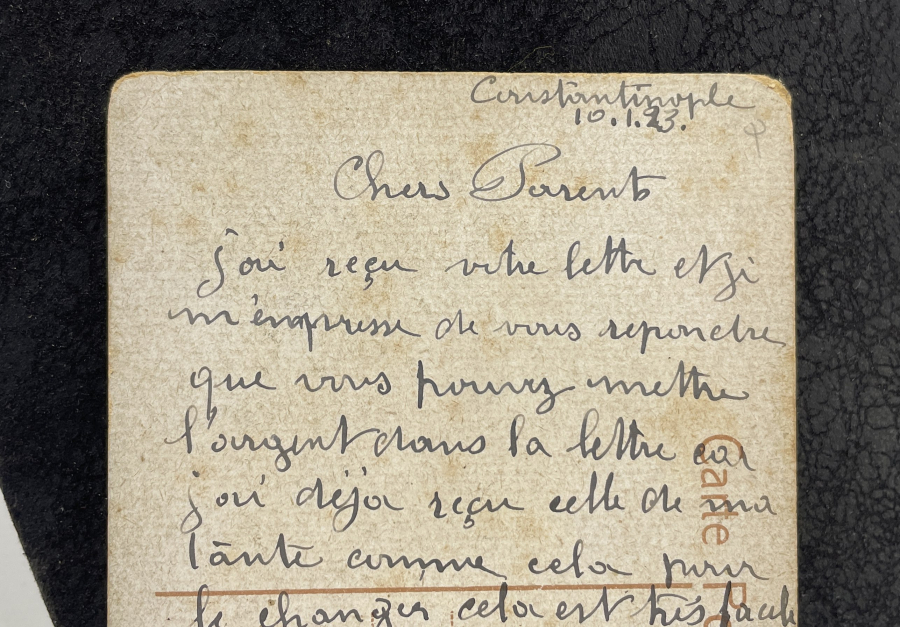 Constantinople
10.1.23.
Chers Parents
j'ai reçu votre lettre et je
m'empresse de vous repondre
que vous pouvez mettre
l'argent dans la lettre car
j'ai déjà reçu celle de ma
tante comme cela pour
le changer cela est très facile
Carte Po